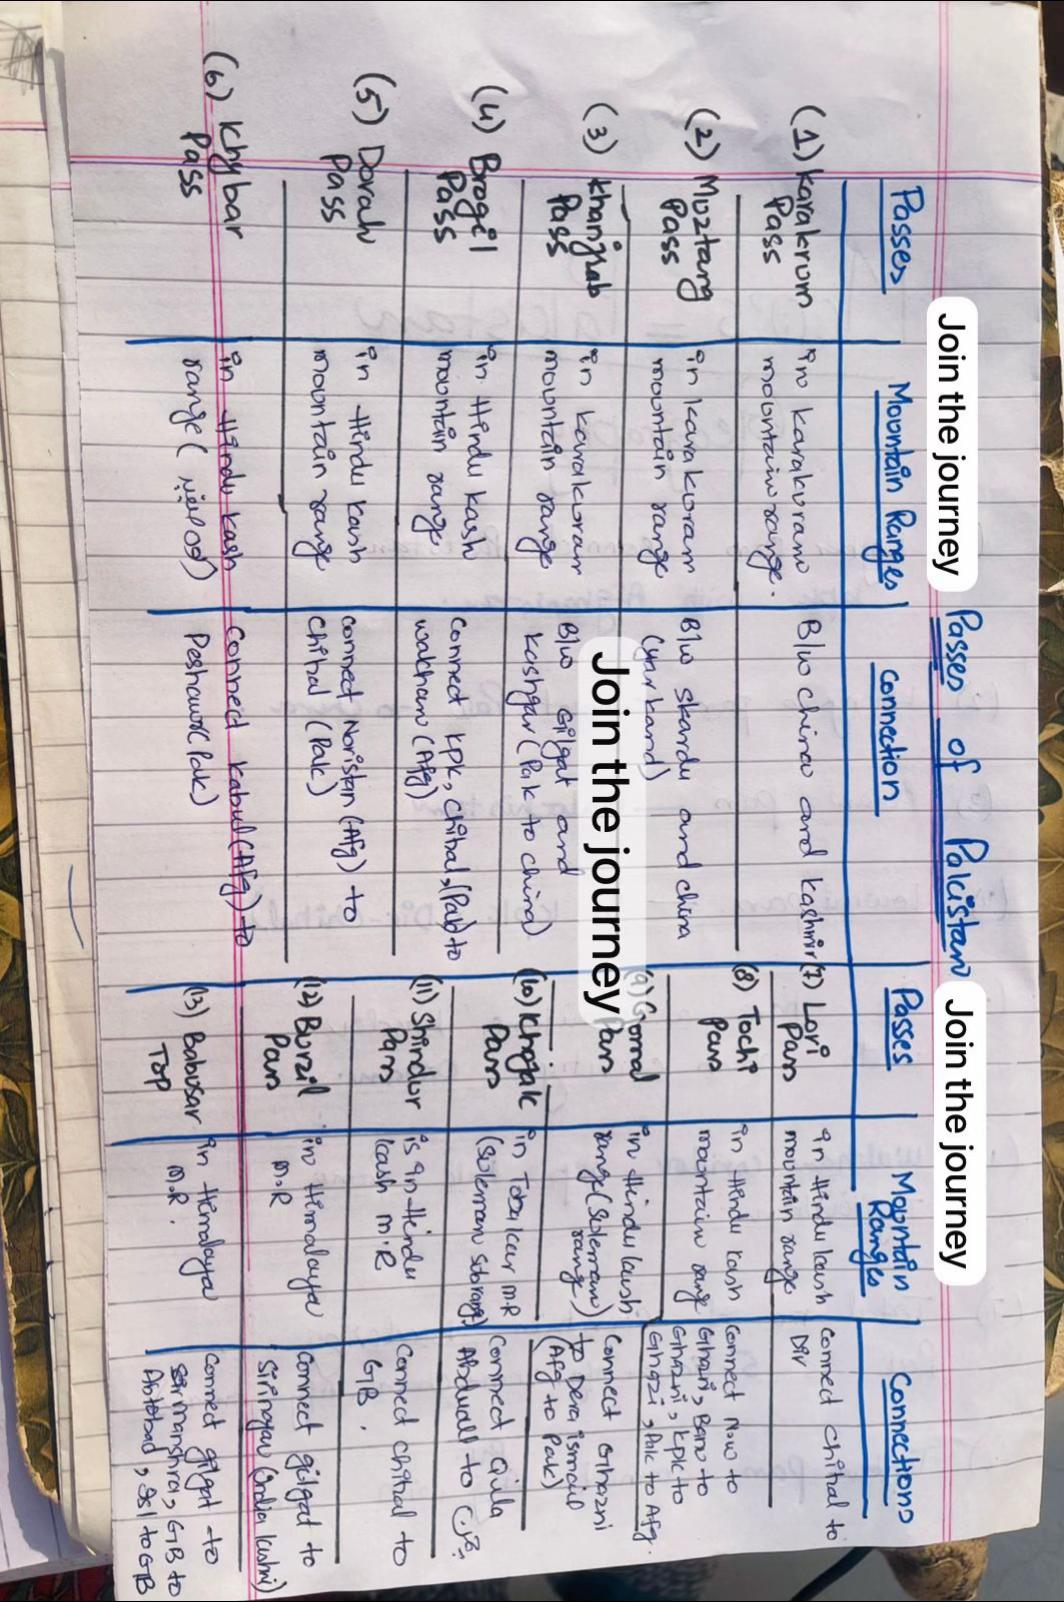 Join the journey
Join the journey
Passes of Pakistan
Passes
Mountain Ranges
Connection
(1) Karakrum
Pass
in karakuram
mountain range.
B/w china and kashmir
(2) Muztang
Pass
in karakuram
mountain range
B/w skardu and china
(yarkand)
(3) Khanjrab
Pass
in karakuram
mountain range
B/w Gilgat and
Kashgar (Pak to china)
(4) Brogil
Pass
in Hindu kash
mountain range
Connect kpk, chitral, (Pak) to
wakhan (Afg)
(5) Dorah
Pass
in Hindu kash
mountain range
connect Noristan (Afg) to
chitral (Pak)
(6) Khybar
Pass
in Hindu kash
range (
Connect kabul (Afg) to
Peshawar (Pak)
Join the journey
Passes
Mountain
Ranges
Connections
(7) Lori
Pass
in Hindu kash
mountain range
connect chitral to
Dir
(8) Tochi
Pass
in Hindu kash
mountain range
connect N.W to
Ghazni, Banu to
Ghazni, kpk to
Ghazni, Pak to Afg.
(9) Gomal
Pass
in Hindu kash
range (Suleman
range)
Connect Ghazni
to Dera ismail
(Afg to Pak)
(10) Khojak
Pass
in Toba kar M.R
(Suleman subrange)
Connect Qila
Abdullah to
(11) Shindur
Pass
is in Hindu
kash M.R
Connect chitral to
GB.
(12) Burzil
Pass
in Himalaya
M.R
Connect gilgat to
Siringar (India kashmir)
(13) Babusar
Top
in Himalaya
M.R.
Connect gilgat to
manshra, GB to
Abtabad, Isl to GB